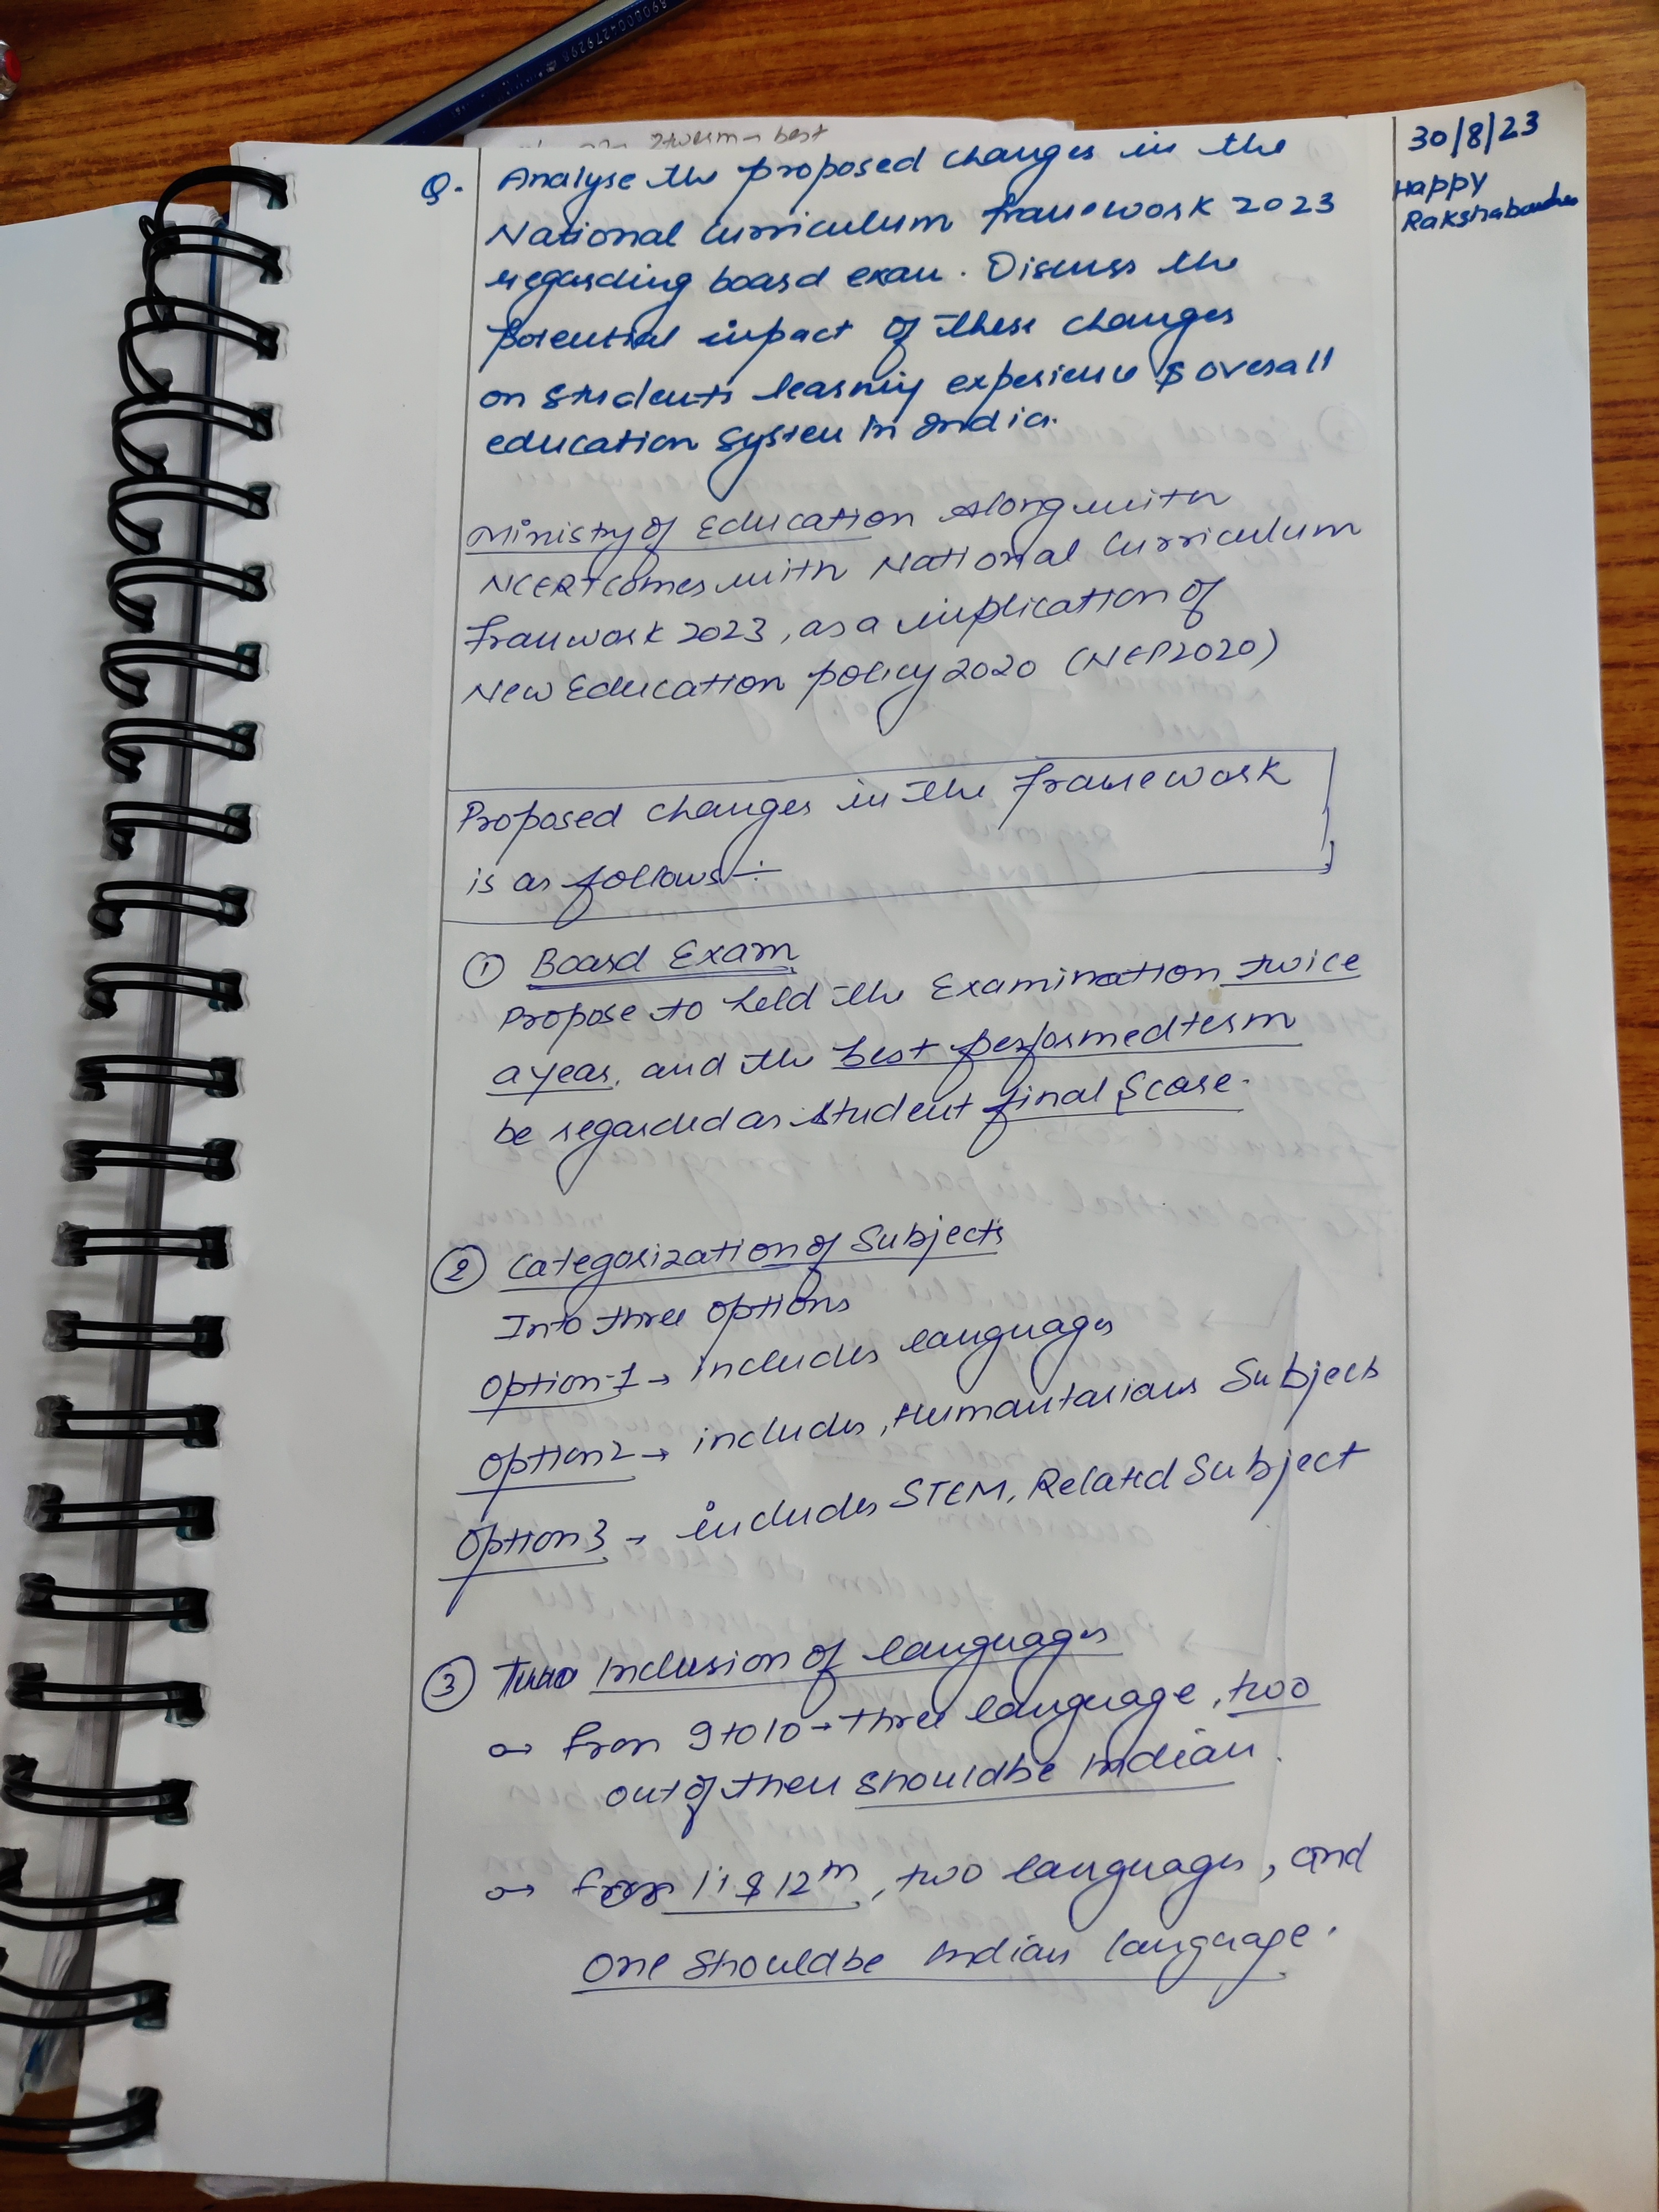 2term - best
30/8/23
Happy
Rakshabandhan
Q. Analyse the proposed changes in the
National Curriculum framework 2023
regarding board exam. Discuss the
potential impact of these changes
on students learning experience & overall
education system in India.
Ministry of Education Along with
NCERT comes with National Curriculum
Framwork 2023, as a implication of
New Education policy 2020 (NEP2020)
Proposed changes in the framework
is as follows :-
① Board Exam
Propose to held the Examination twice
a year, and the best performed term
be regarded as student final Score.
② Categorization of Subjects
Into three options
Option-1 → includes languages
Option 2 → includes, Humantarians Subjects
Option 3 → includes STEM, Related Subject
③ Inclusion of languages
→ from 9 to 10 → three language, two
out of them should be Indian.
→ from 11 & 12th, two languages, and
One should be Indian language.